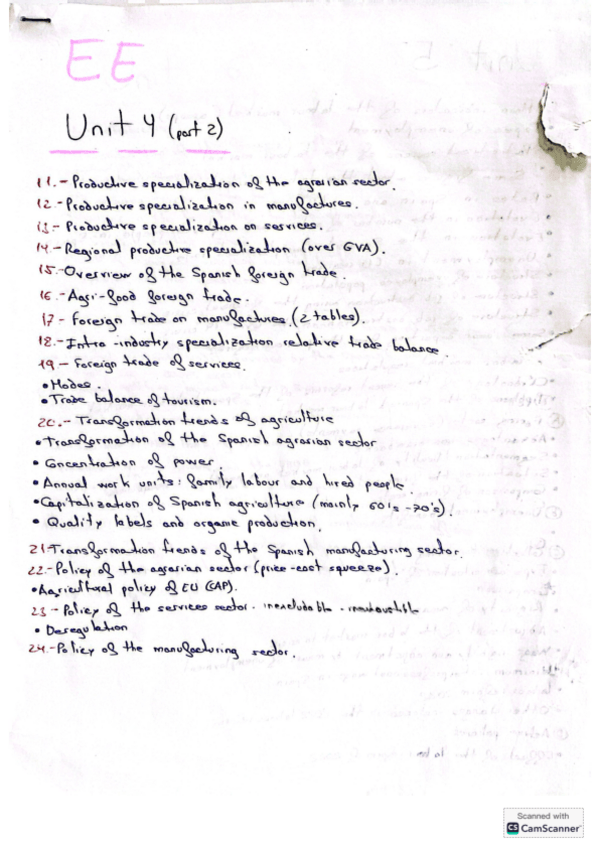 EE
Unit 4 (part 2)
11.- Productive specialization of the agrarian sector.
12.- Productive specialization in manufactures.
13.- Productive specialization on services.
14.- Regional productive specialization (over GVA).
15.- Overview of the Spanish foreign trade.
16.- Agri-food foreign trade.
17.- Foreign trade on manufactures (2 tables).
18.- Intra-industry specialization relative trade balance.
19.- Foreign trade of services.
• Modes.
• Trade balance of tourism.
20.- Transformation trends of agriculture
• Transformation of the Spanish agrarian sector
• Concentration of power.
• Annual work units: family labour and hired people.
• Capitalization of Spanish agriculture (mainly 60's-70's).
• Quality labels and organic production.
21.- Transformation trends of the Spanish manufacturing sector.
22.- Policy of the agrarian sector (price-cost squeeze).
• Agricultural policy of EU (CAP).
23.- Policy of the services sector.
• Deregulation
24.- Policy of the manufacturing sector.
Scanned with
CS CamScanner